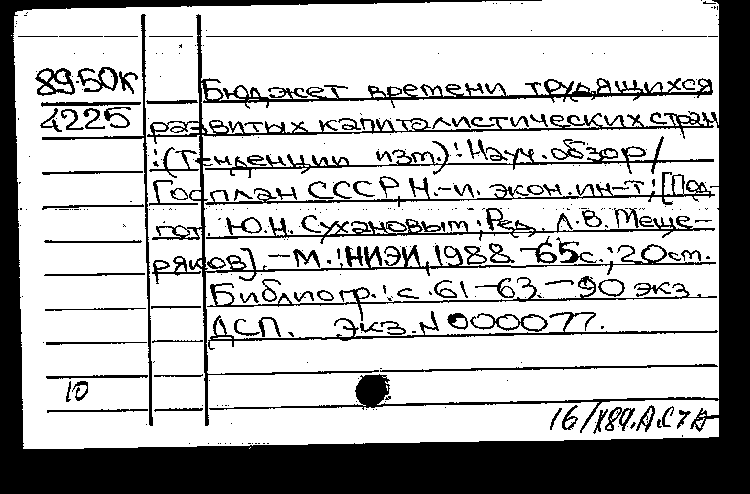 89-50К
4225
Бюджет времени трудящихся
развитых капиталистических стран
: (Тенденции изм.) : Науч. обзор /
Госплан СССР, Н.-и. экон. ин-т; [Под-
гот. Ю.Н. Сухановым; Ред. Л.В. Меще-
ряков]. - М. : НИЭИ, 1988. - 65с.; 20см.
Библиогр.: с. 61-63. - 90 экз.
ДСП. Экз. N 000077.
10